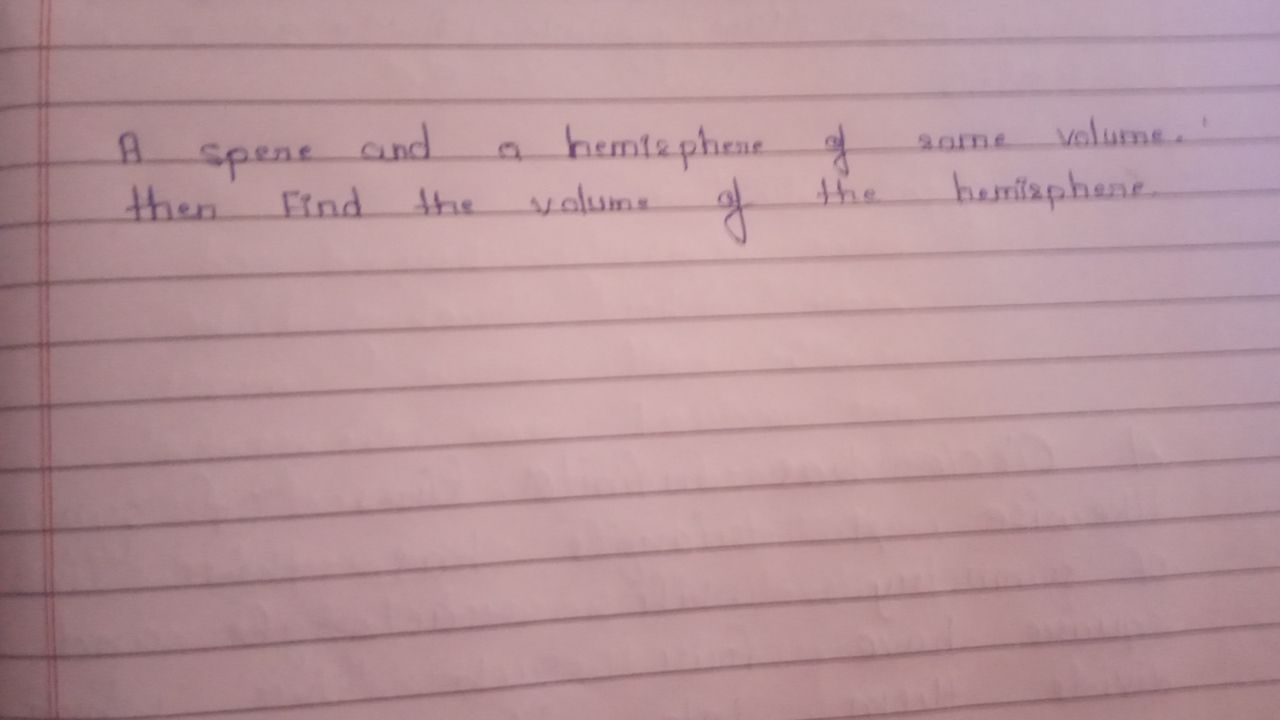 A spere and a hemisphere of same volume.
then Find the volume of the hemisphere.